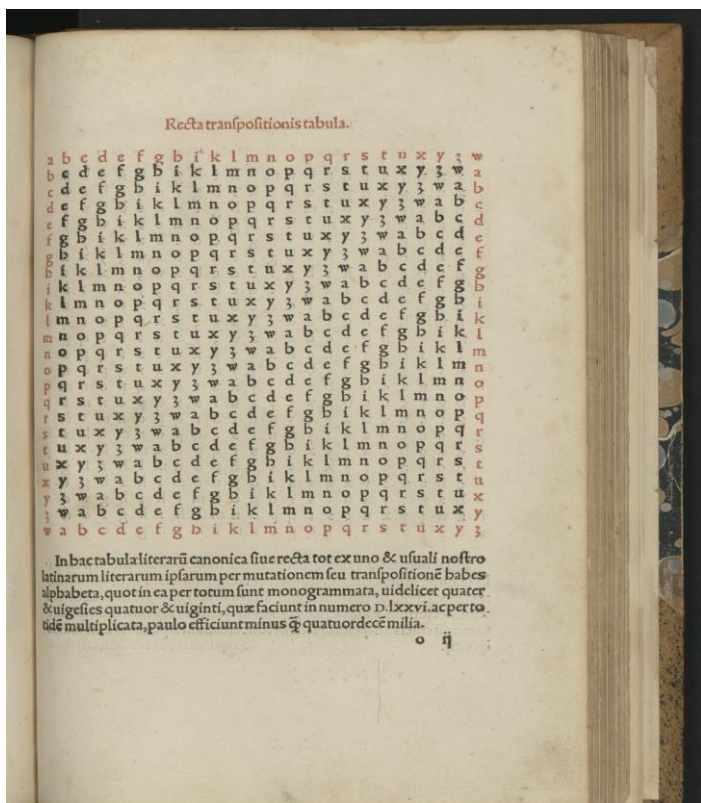 Recta transpositionis tabula.
a b c d e f g h i k l m n o p q r s t u x y z w
b c d e f g h i k l m n o p q r s t u x y z w a
c d e f g h i k l m n o p q r s t u x y z w a b
d e f g h i k l m n o p q r s t u x y z w a b c
e f g h i k l m n o p q r s t u x y z w a b c d
f g h i k l m n o p q r s t u x y z w a b c d e
g h i k l m n o p q r s t u x y z w a b c d e f
h i k l m n o p q r s t u x y z w a b c d e f g
i k l m n o p q r s t u x y z w a b c d e f g h
k l m n o p q r s t u x y z w a b c d e f g h i
l m n o p q r s t u x y z w a b c d e f g h i k
m n o p q r s t u x y z w a b c d e f g h i k l
n o p q r s t u x y z w a b c d e f g h i k l m
o p q r s t u x y z w a b c d e f g h i k l m n
p q r s t u x y z w a b c d e f g h i k l m n o
q r s t u x y z w a b c d e f g h i k l m n o p
r s t u x y z w a b c d e f g h i k l m n o p q
s t u x y z w a b c d e f g h i k l m n o p q r
t u x y z w a b c d e f g h i k l m n o p q r s
u x y z w a b c d e f g h i k l m n o p q r s t
x y z w a b c d e f g h i k l m n o p q r s t u
y z w a b c d e f g h i k l m n o p q r s t u x
z w a b c d e f g h i k l m n o p q r s t u x y
w a b c d e f g h i k l m n o p q r s t u x y z
In hac tabula literarū canonica siue recta tot ex uno & usuali nostro
latinarum literarum ipsarum per mutationem seu transpositionē habes
alphabeta, quot in ea per totum sunt monogrammata, uidelicet quater
& uigesies quatuor & uiginti, quæ faciunt in numero D.lxxvi. ac per to
tidē multiplicata, paulo efficiunt minus q̄ȝ quatuordecē milia.
o ij